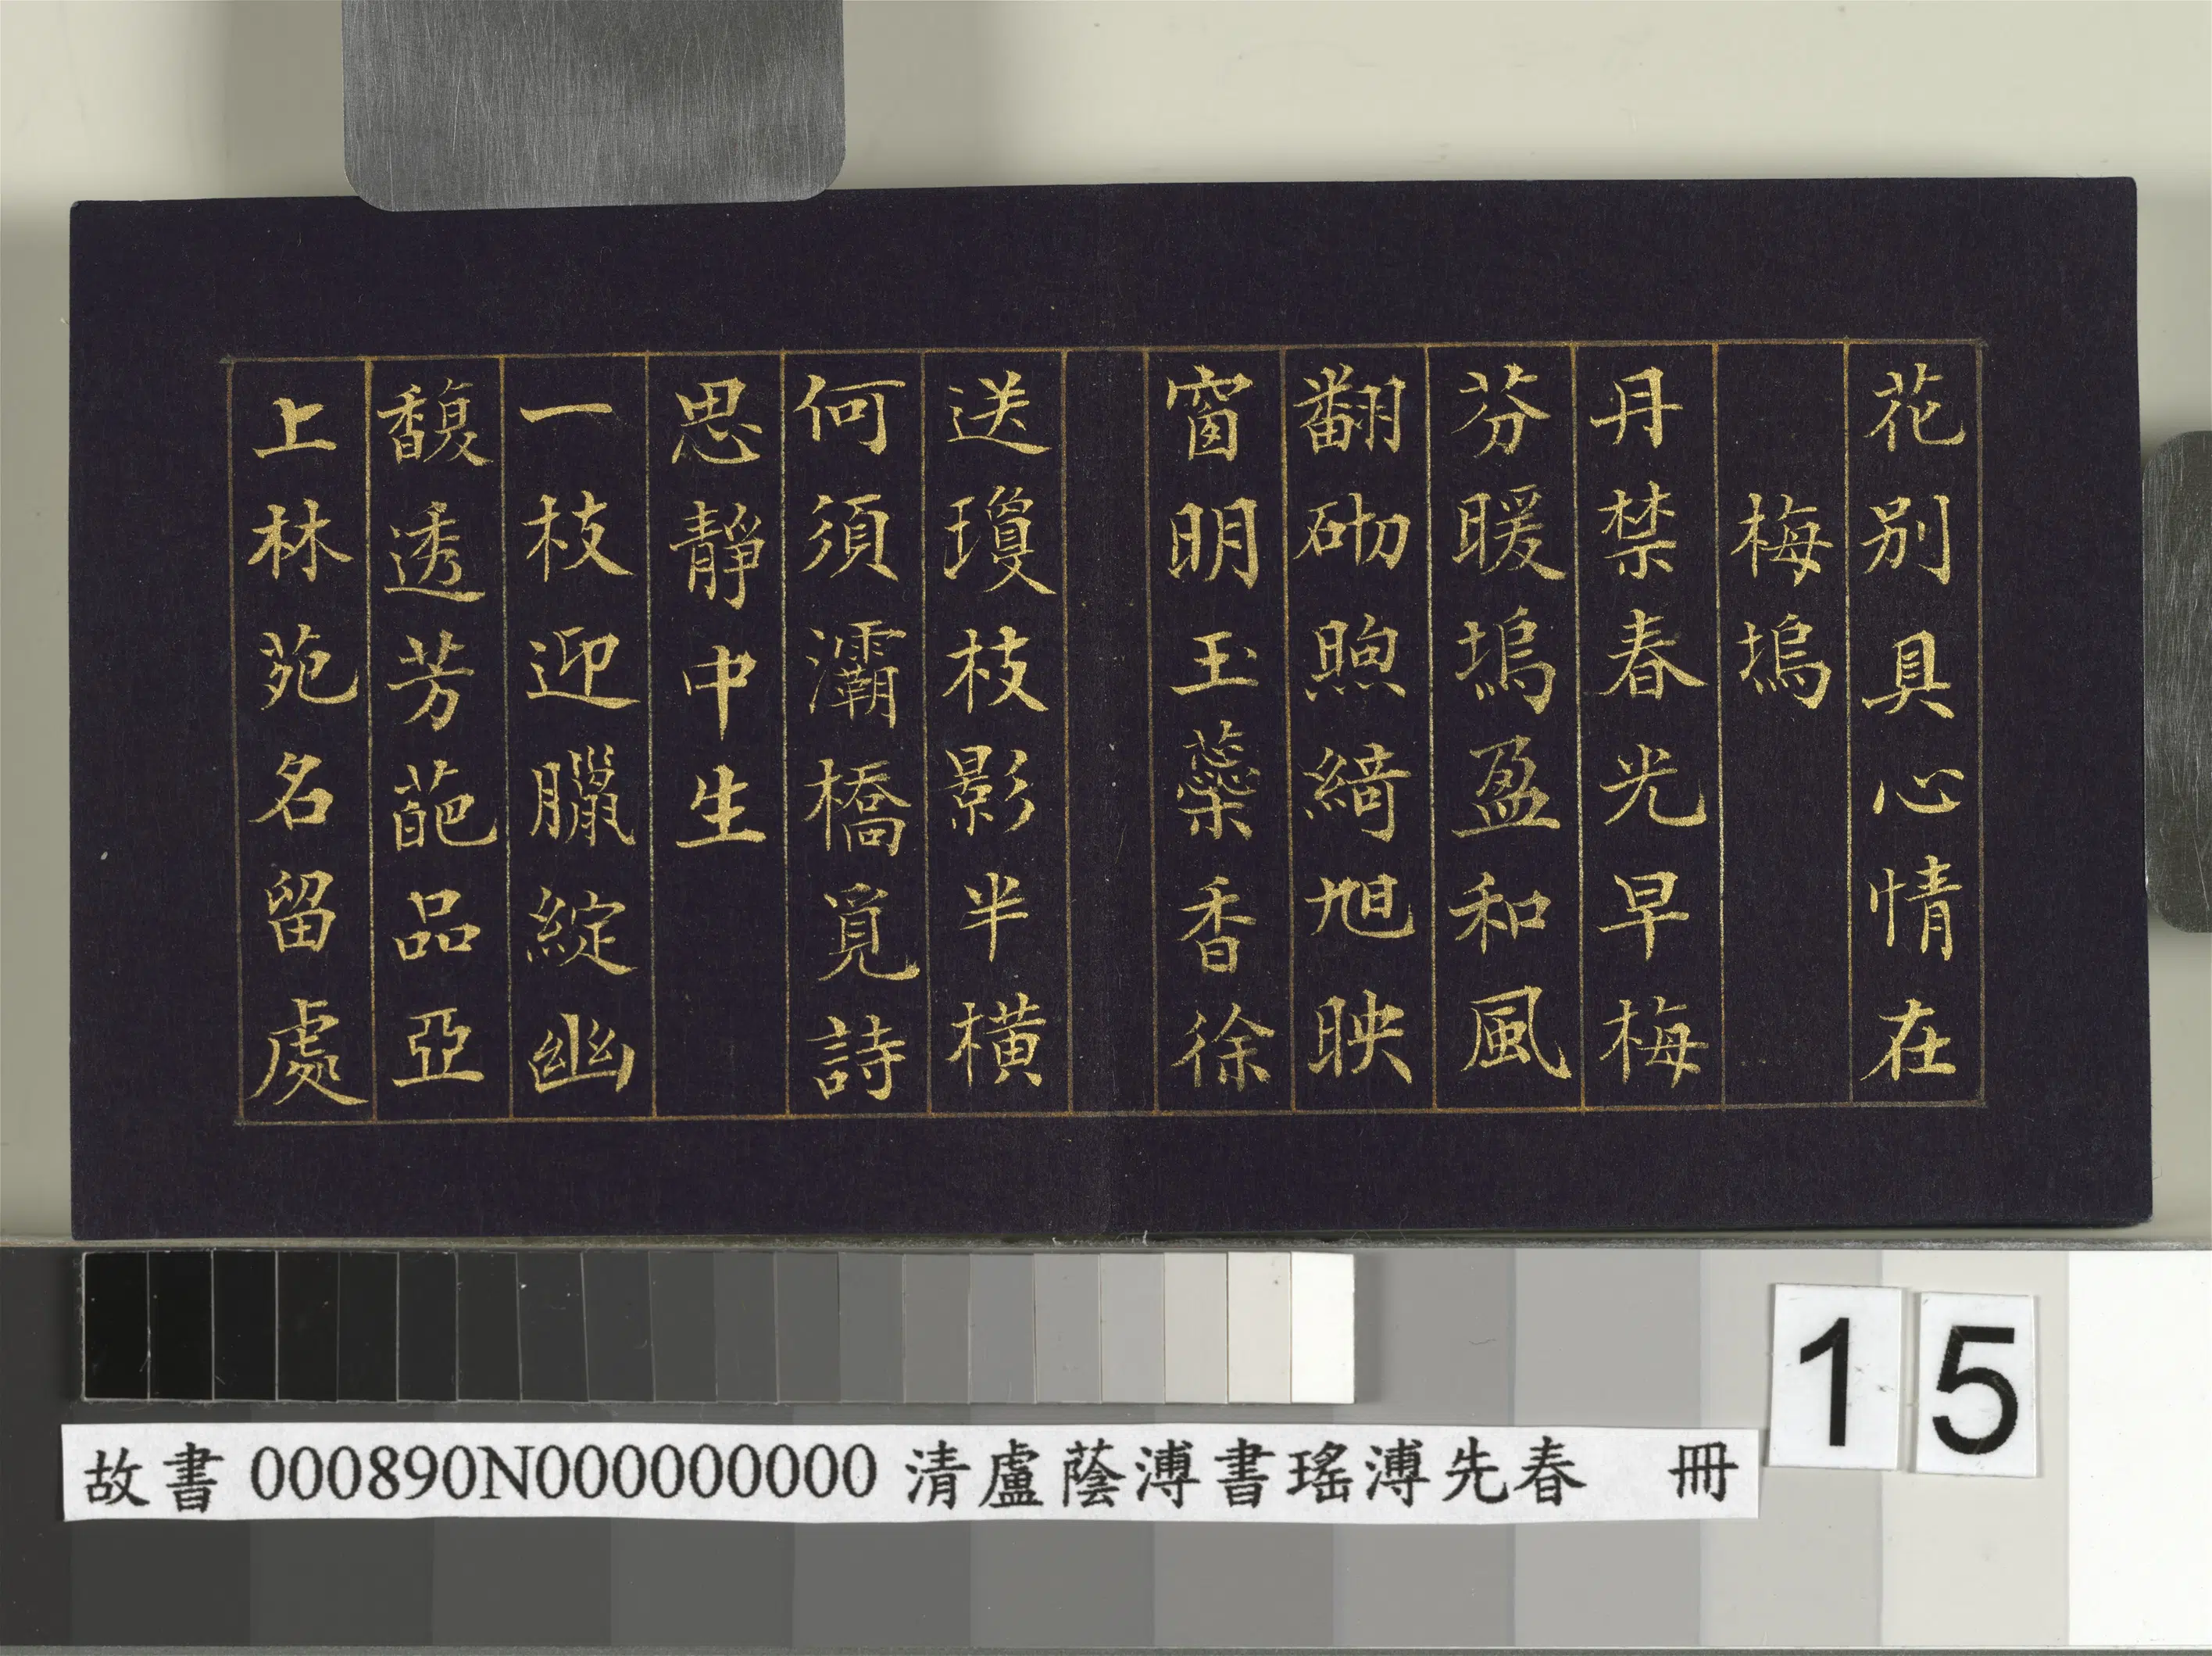 花別具心情在
梅塢
丹禁春光早梅
芬暖塢盈和風
翻砌煦綺旭映
窗明玉蘂香徐
送瓊枝影半橫
何須灞橋覓詩
思靜中生
一枝迎臘綻幽
馥透芳葩品亞
上林苑名留處
15
故書000890N000000000 清盧蔭溥書瑤溥先春 冊